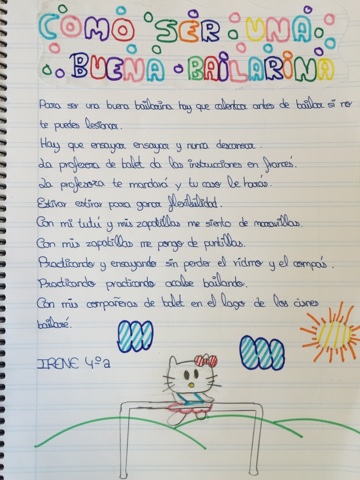 COMO SER UNA
BUENA BAILARINA
Para ser una buena bailarina hay que calentar antes de bailar si no
te puedes lesionar.
Hay que ensayar ensayar y nunca descansar.
La profesora de balet da las instrucciones en francés.
La profesora te mandará y tu caso le harás.
Estirar estirar para ganar flexibilidad.
Con mi tutú y mis zapatillas me siento de maravillas.
Con mis zapatillas me pongo de puntillas.
Practicando y ensayando sin perder el ridmo y el compás.
Practicando practicando acabe bailando.
Con mis compañeras de balet en el lago de los cisnes
bailaré.
IRENE 4ºa